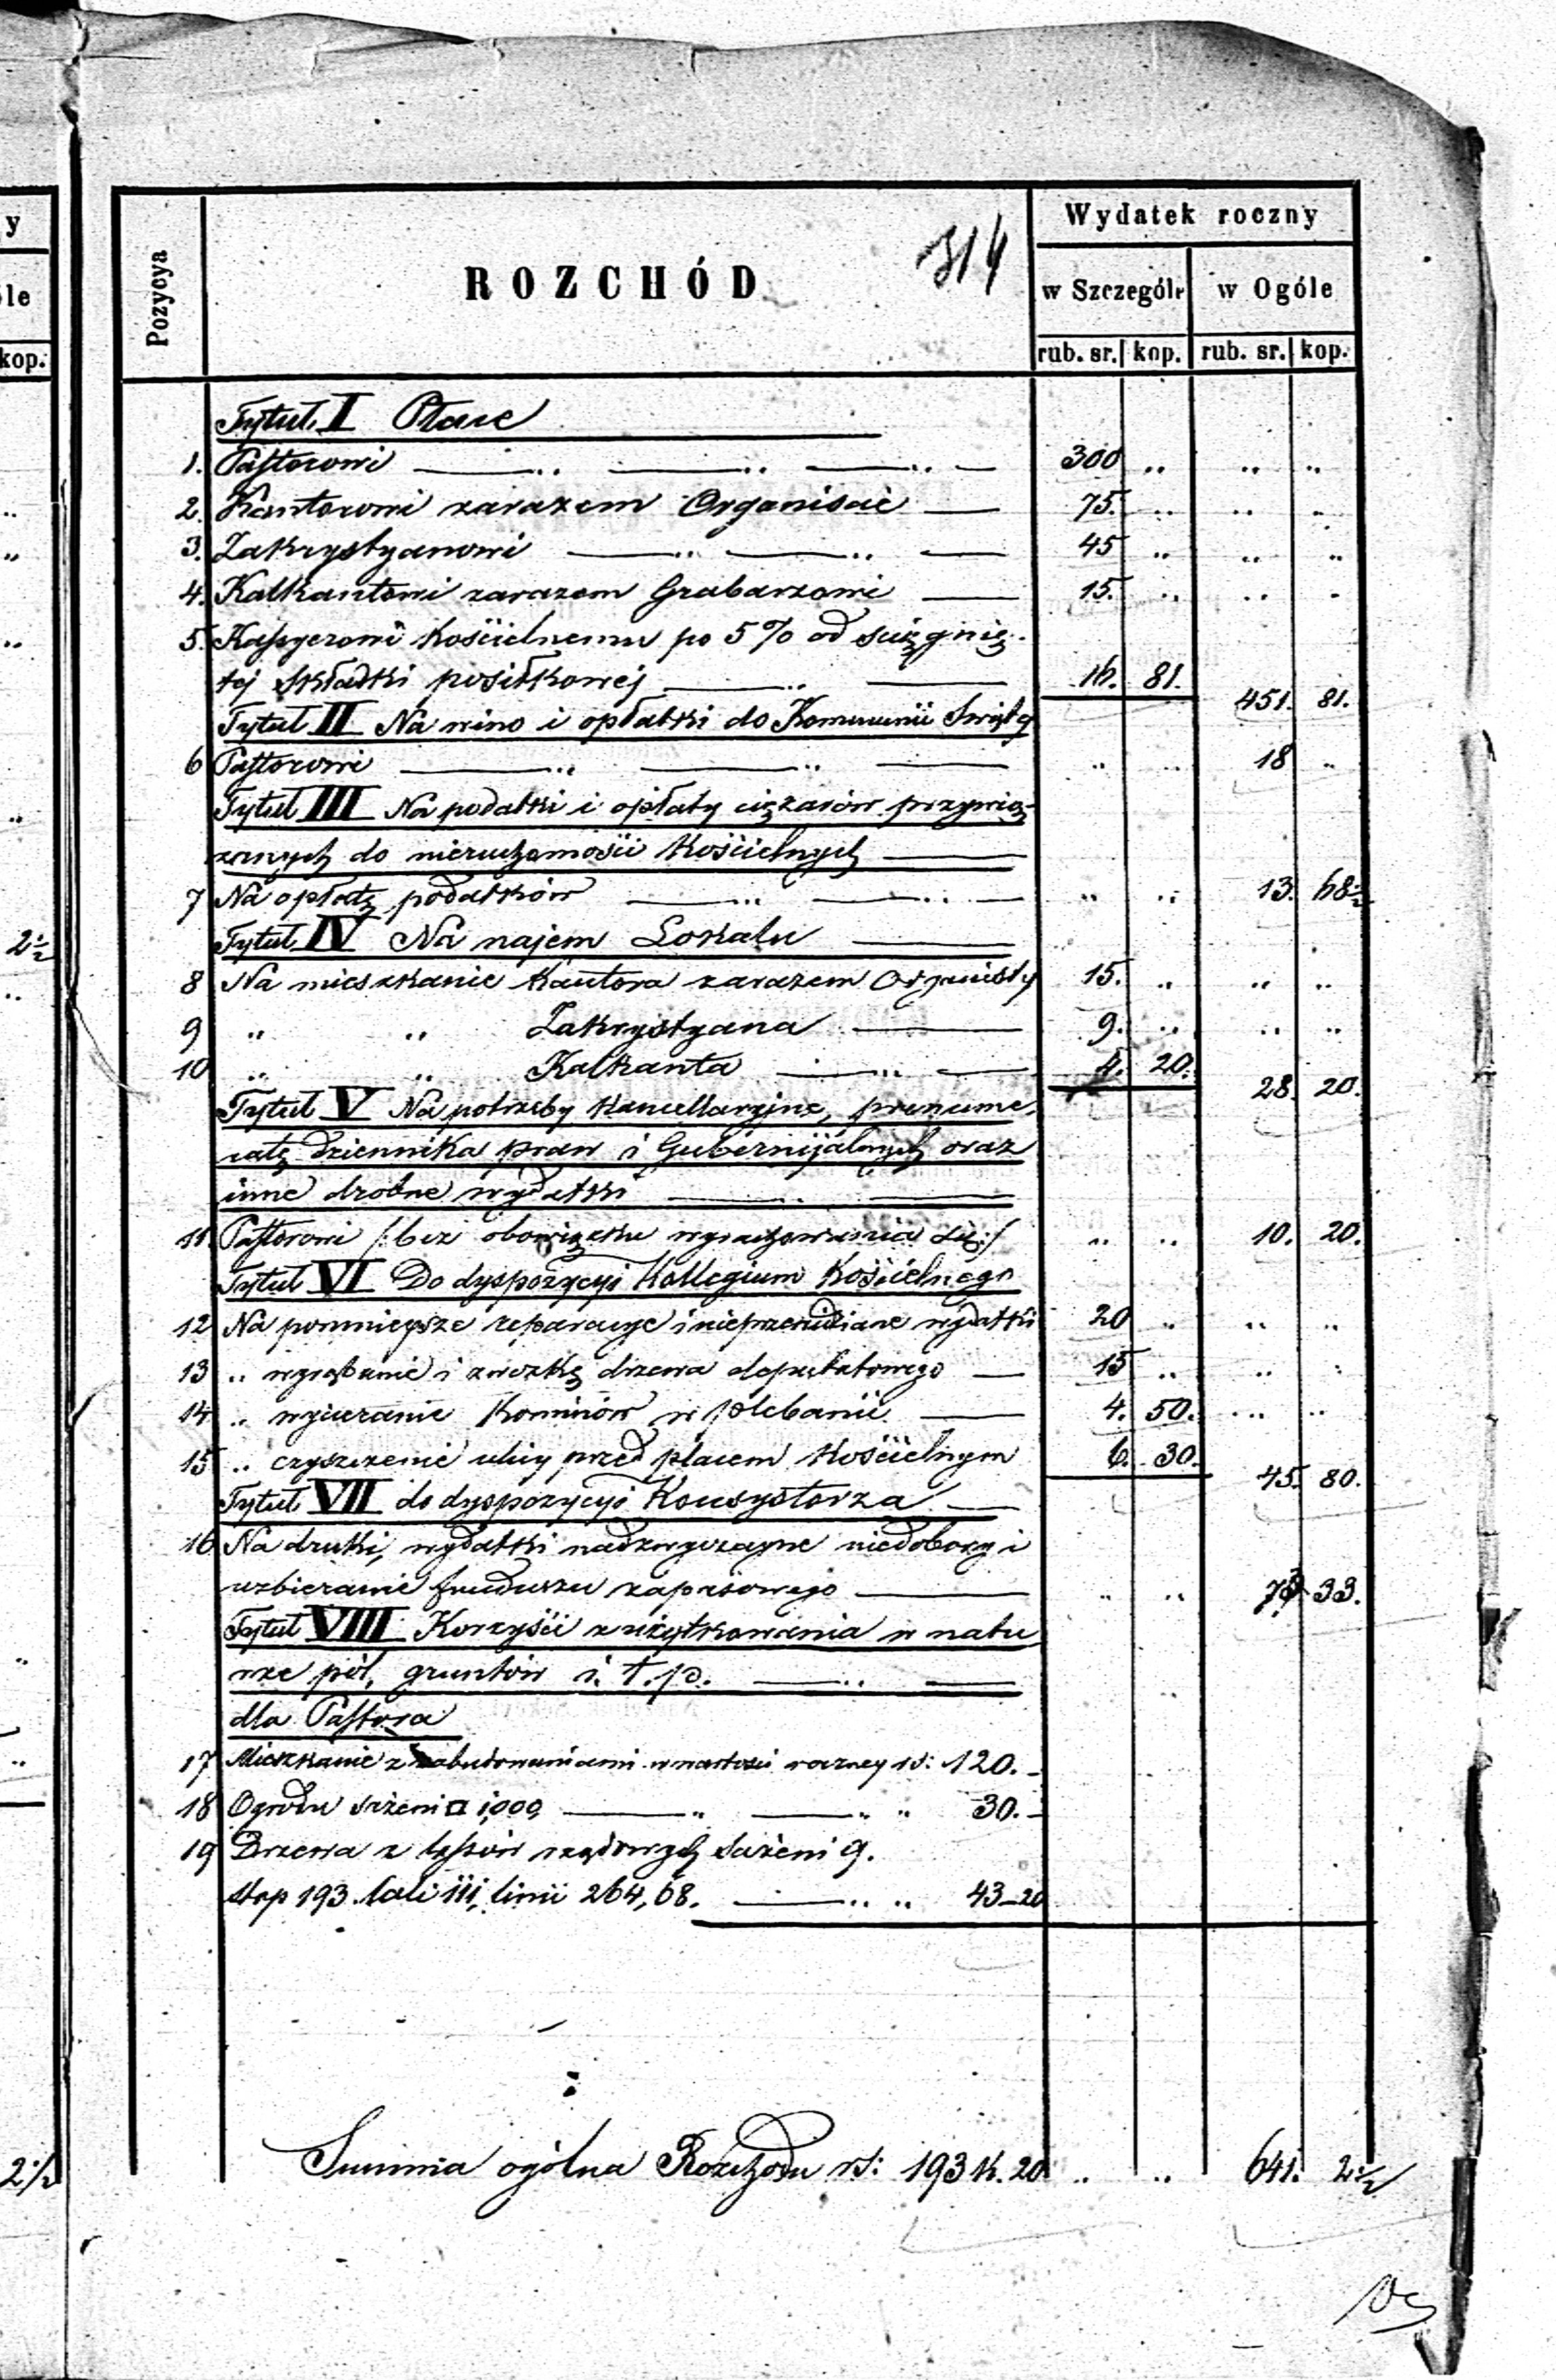 y
le
kop.
2½
2½
314
Pozycya
ROZCHÓD
Wydatek roczny
w Szczególe w Ogóle
rub. sr. kop. rub. sr. kop.
Tytuł I Płace
1. Pastorowi 300 „ „ „
2. Kantorowi zarazem Organiście 75. „ „ „
3. Zakrystyanowi 45 „ „ „
4. Kalkantowi zarazem Grabarzowi 15. „ „ „
5. Kassyerowi kościelnemu po 5% od ściągnię-
tej składki posiłkowej 16. 81. 451. 81.
Tytuł II Na wino i opłatki do Kommunii Święty
6 Pastorowi „ „ 18 „
Tytuł III Na podatki i opłaty ciężarów przywią-
zanych do nieruchomości Kościelnych
7 Na opłatę podatków „ „ 13. 68½
Tytuł IV Na najem Lokalu
8 Na mieszkanie Kantora zarazem Organisty 15. „ „ „
9 „ „ Zakrystyana 9. „ „ „
10 „ „ Kalkanta 4. 20. 28. 20.
Tytuł V Na potrzeby Kancellaryjne, prenume-
ratę Dziennika praw i Gubernijalnych oraz
inne drobne wydatki
11 Pastorowi /: bez obowiązku wyrachowania się :/ „ „ 10. 20.
Tytuł VI Do dyspozycyi Kollegium Kościelnego
12 Na pomniejsze reparacye i nieprzewidziane wydatki 20 „ „ „
13 „ wyrąbanie i zwózkę drzewa deputatowego 15 „ „ „
14 „ wycieranie Kominów w plebanii 4. 50. „ „
15 „ czyszczenie ulicy przed placem Kościelnym 6. 30. 45. 80.
Tytuł VII do dyspozycyi Konsystorza
16 Na druki, wydatki nadzwyczajne niedobory i
uzbieranie funduszu zapasowego „ „ 73 33.
Tytuł VIII Korzyści z użytkowania w natu
rze pól, gruntów i. t. p.
dla Pastora
17 Mieszkanie z zabudowaniami w wartości roczney rs: 120. -
18 Ogrodu sążeni □ 1,000 „ „ 30. -
19 Drzewa z lasów rządowych sążeni 9.
stop 193. cali iii, linii 264,68. „ „ 43-20
Summa ogólna Rozchodu rs: 193 k. 20 „ „ 641. 2½